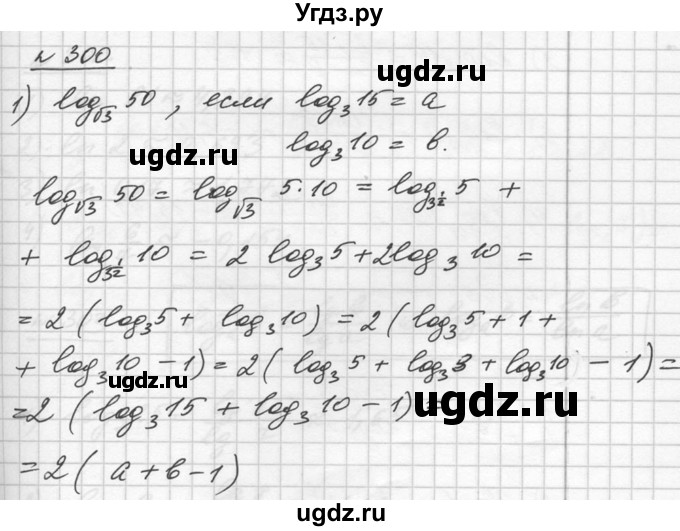 Угдз.ру
N 300
ugdz.ru
1) log√3 50 , если log₃15 = a
ugdz.ru
log₃10 = b.
log√3 50 = log√3 5·10 = log_{3^{1/2}} 5 +
+ log_{3^{1/2}} 10 = 2 log₃5 + 2log₃10 =
= 2 (log₃5 + log₃10) = 2 (log₃5 + 1 +
+ log₃10 − 1) = 2 (log₃5 + log₃3 + log₃10 − 1) =
= 2 (log₃15 + log₃10 − 1) =
ugdz.ru
= 2 ( a + b − 1)
ugdz.ru